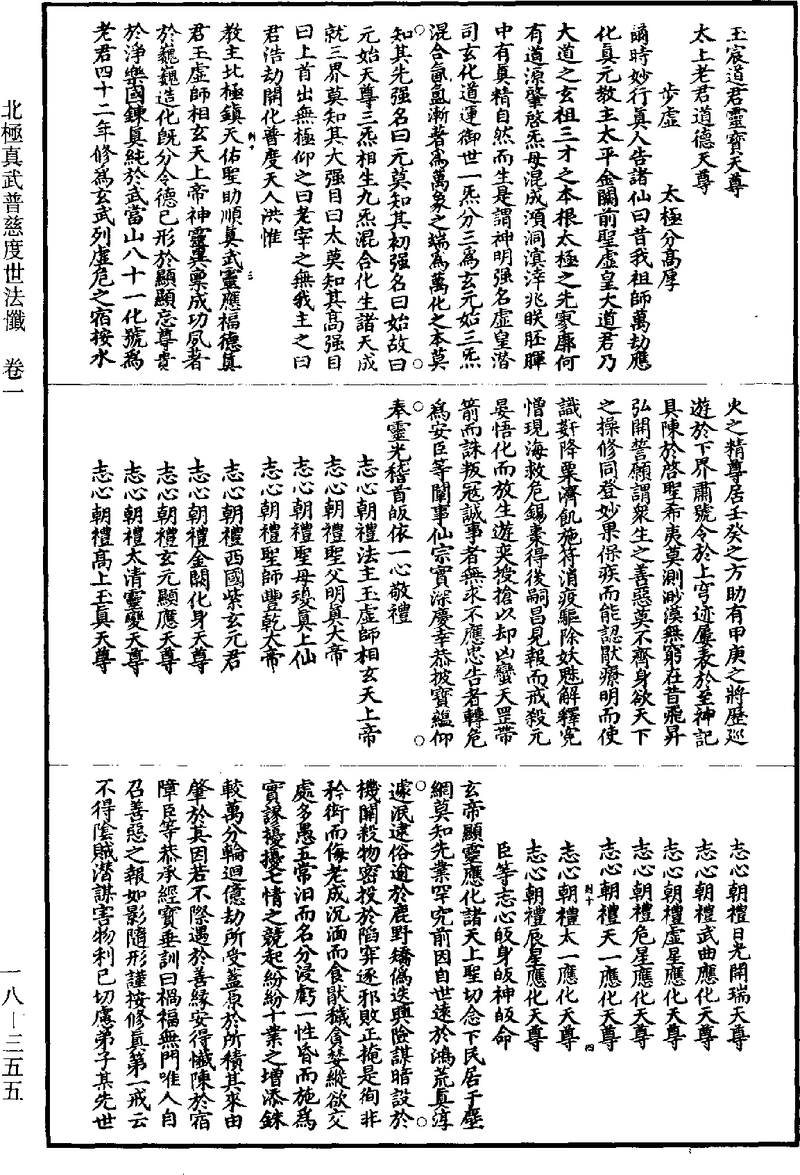 玉宸道君靈寶天尊
太上老君道德天尊
步虛　太極分高厚
誦時妙行真人告諸仙曰昔我祖師萬劫應
化真元教主太平金闕前聖虛皇大道君乃
大道之玄祖三才之本根太極之先寥廓何
有道源肇啓炁母混成澒洞溟涬兆朕胚暉
中有真精自然而生是謂神明强名虛皇潛
司玄化道運御世一炁分三為玄元始三炁
混合氤氳漸著為萬象之端為萬化之本莫
知其先强名曰元莫知其初强名曰始故曰
元始天尊三炁相生九炁混合化生諸天成
就三界莫知其大强目曰太莫知其高强目
曰上首出無極仰之曰老宰之無我主之曰
君浩劫開化普度天人洪惟
教主北極鎮天佑聖助順真武靈應福德真
君玉虛師相玄天上帝神靈異稟成功夙著
於巍巍造化旣分令德已形於顯顯忘尊貴
於淨樂國鍊真純於武當山八十一化號為
老君四十二年修為玄武列虛危之宿按水
火之精尊居壬癸之方助有甲庚之將歷巡
遊於下界肅號令於上穹迹屢表於至神記
具陳於啓聖希夷莫測渺漠無窮在昔飛昇
弘開誓願謂衆生之善惡莫不齊身欲天下
之操修同登妙果保疾而能認猒癈明而使
識姧降粟濟飢施符消疫驅除妖魃解釋寃
憎現海救危錫棗得後嗣昌見報而戒殺元
晏悟化而放生遊奕授搶以却凶蠻天罡帶
箭而誅叛冦誠事者無求不應忠告者轉危
為安臣等闡事仙宗實深慶幸恭披寶蘊仰
奉靈光稽首皈依一心敬禮
志心朝禮法主玉虛師相玄天上帝
志心朝禮聖父明真大帝
志心朝禮聖母瓊真上仙
志心朝禮聖師豐乾大帝
志心朝禮西國紫玄元君
志心朝禮金闕化身天尊
志心朝禮玄元顯應天尊
志心朝禮太清靈變天尊
志心朝禮高上玉真天尊
志心朝禮日光開瑞天尊
志心朝禮武曲應化天尊
志心朝禮虛星應化天尊
志心朝禮危星應化天尊
志心朝禮天一應化天尊
志心朝禮太一應化天尊
志心朝禮辰星應化天尊
臣等志心皈身皈神皈命
玄帝顯靈應化諸天上聖切念下民居于塵
網莫知先業罕究前因自世遠於鴻荒真淳
遽泯逮俗逾於鹿野矯僞迭興險謀暗設於
機關殺物密投於陷穽逐邪敗正掩是徇非
矜衒而侮老成沉湎而食猒穢貪婪縱欲交
處多愚五常汩而名分浸虧一性昏而施為
實謬擾擾七情之競起紛紛十業之增添銖
較萬分輪迴億劫所受蓋原於所積其來由
肇於其因若不際遇於善緣安得懺陳於宿
障臣等恭承經寶垂訓曰禍福無門唯人自
召善惡之報如影隨形謹按修真第一戒云
不得陰賊潛謀害物利已切慮弟子某先世
北極真武普慈度世法懺　卷一
一八—三五五